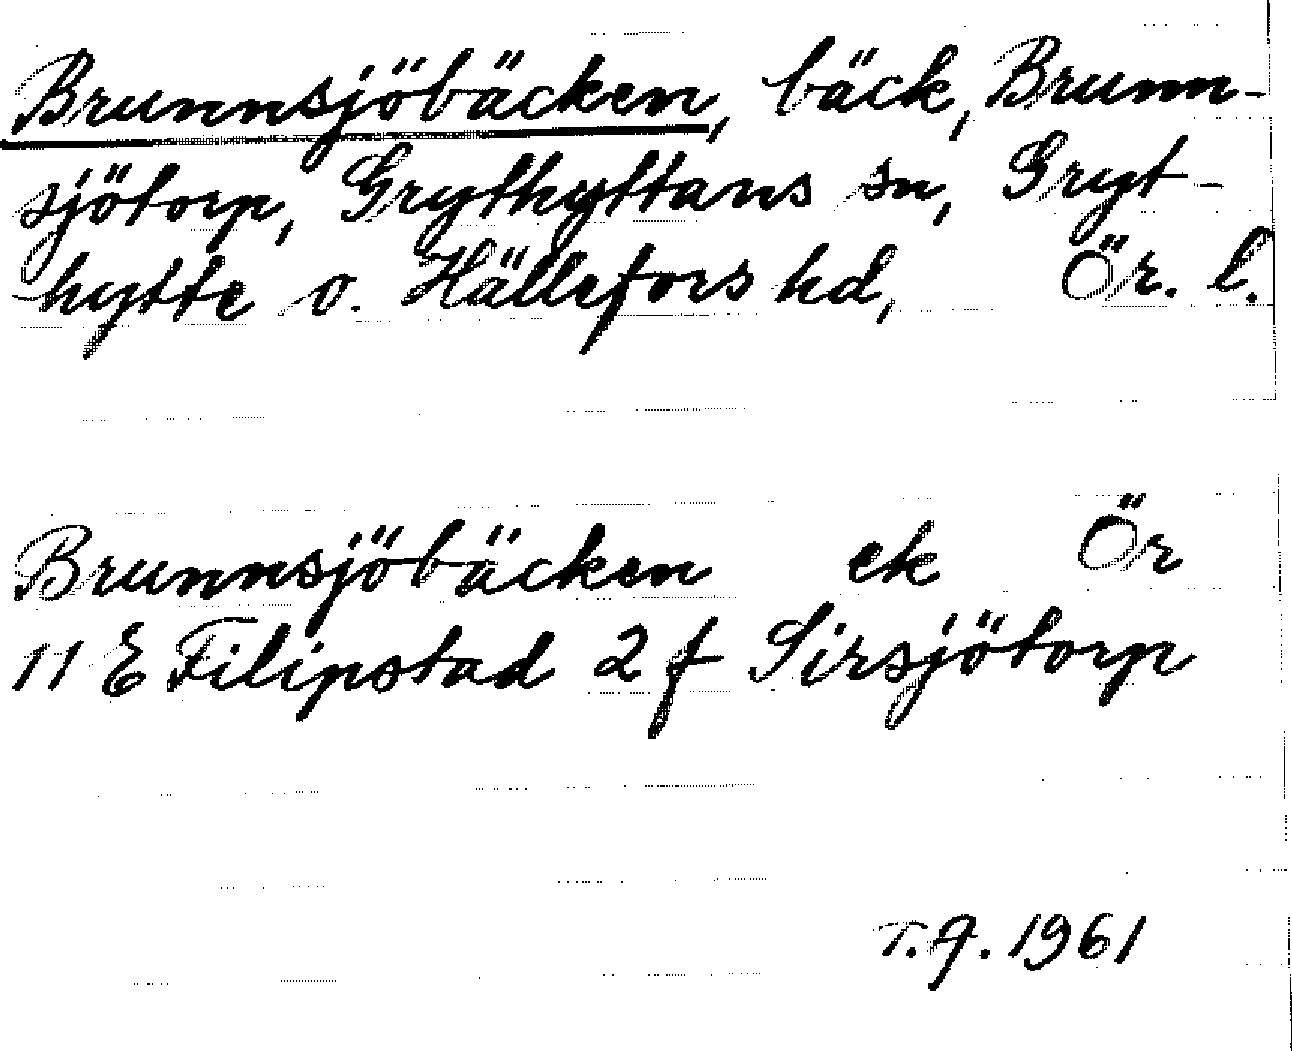 Brunnsjöbäcken, bäck, Brunn-
sjötorp, Grythyttans sn, Gryt-
hytte o. Hällefors hd, Ör. l.
Brunnsjöbäcken ek Ör
11 E Filipstad 2 f Sirsjötorp
T.A. 1961